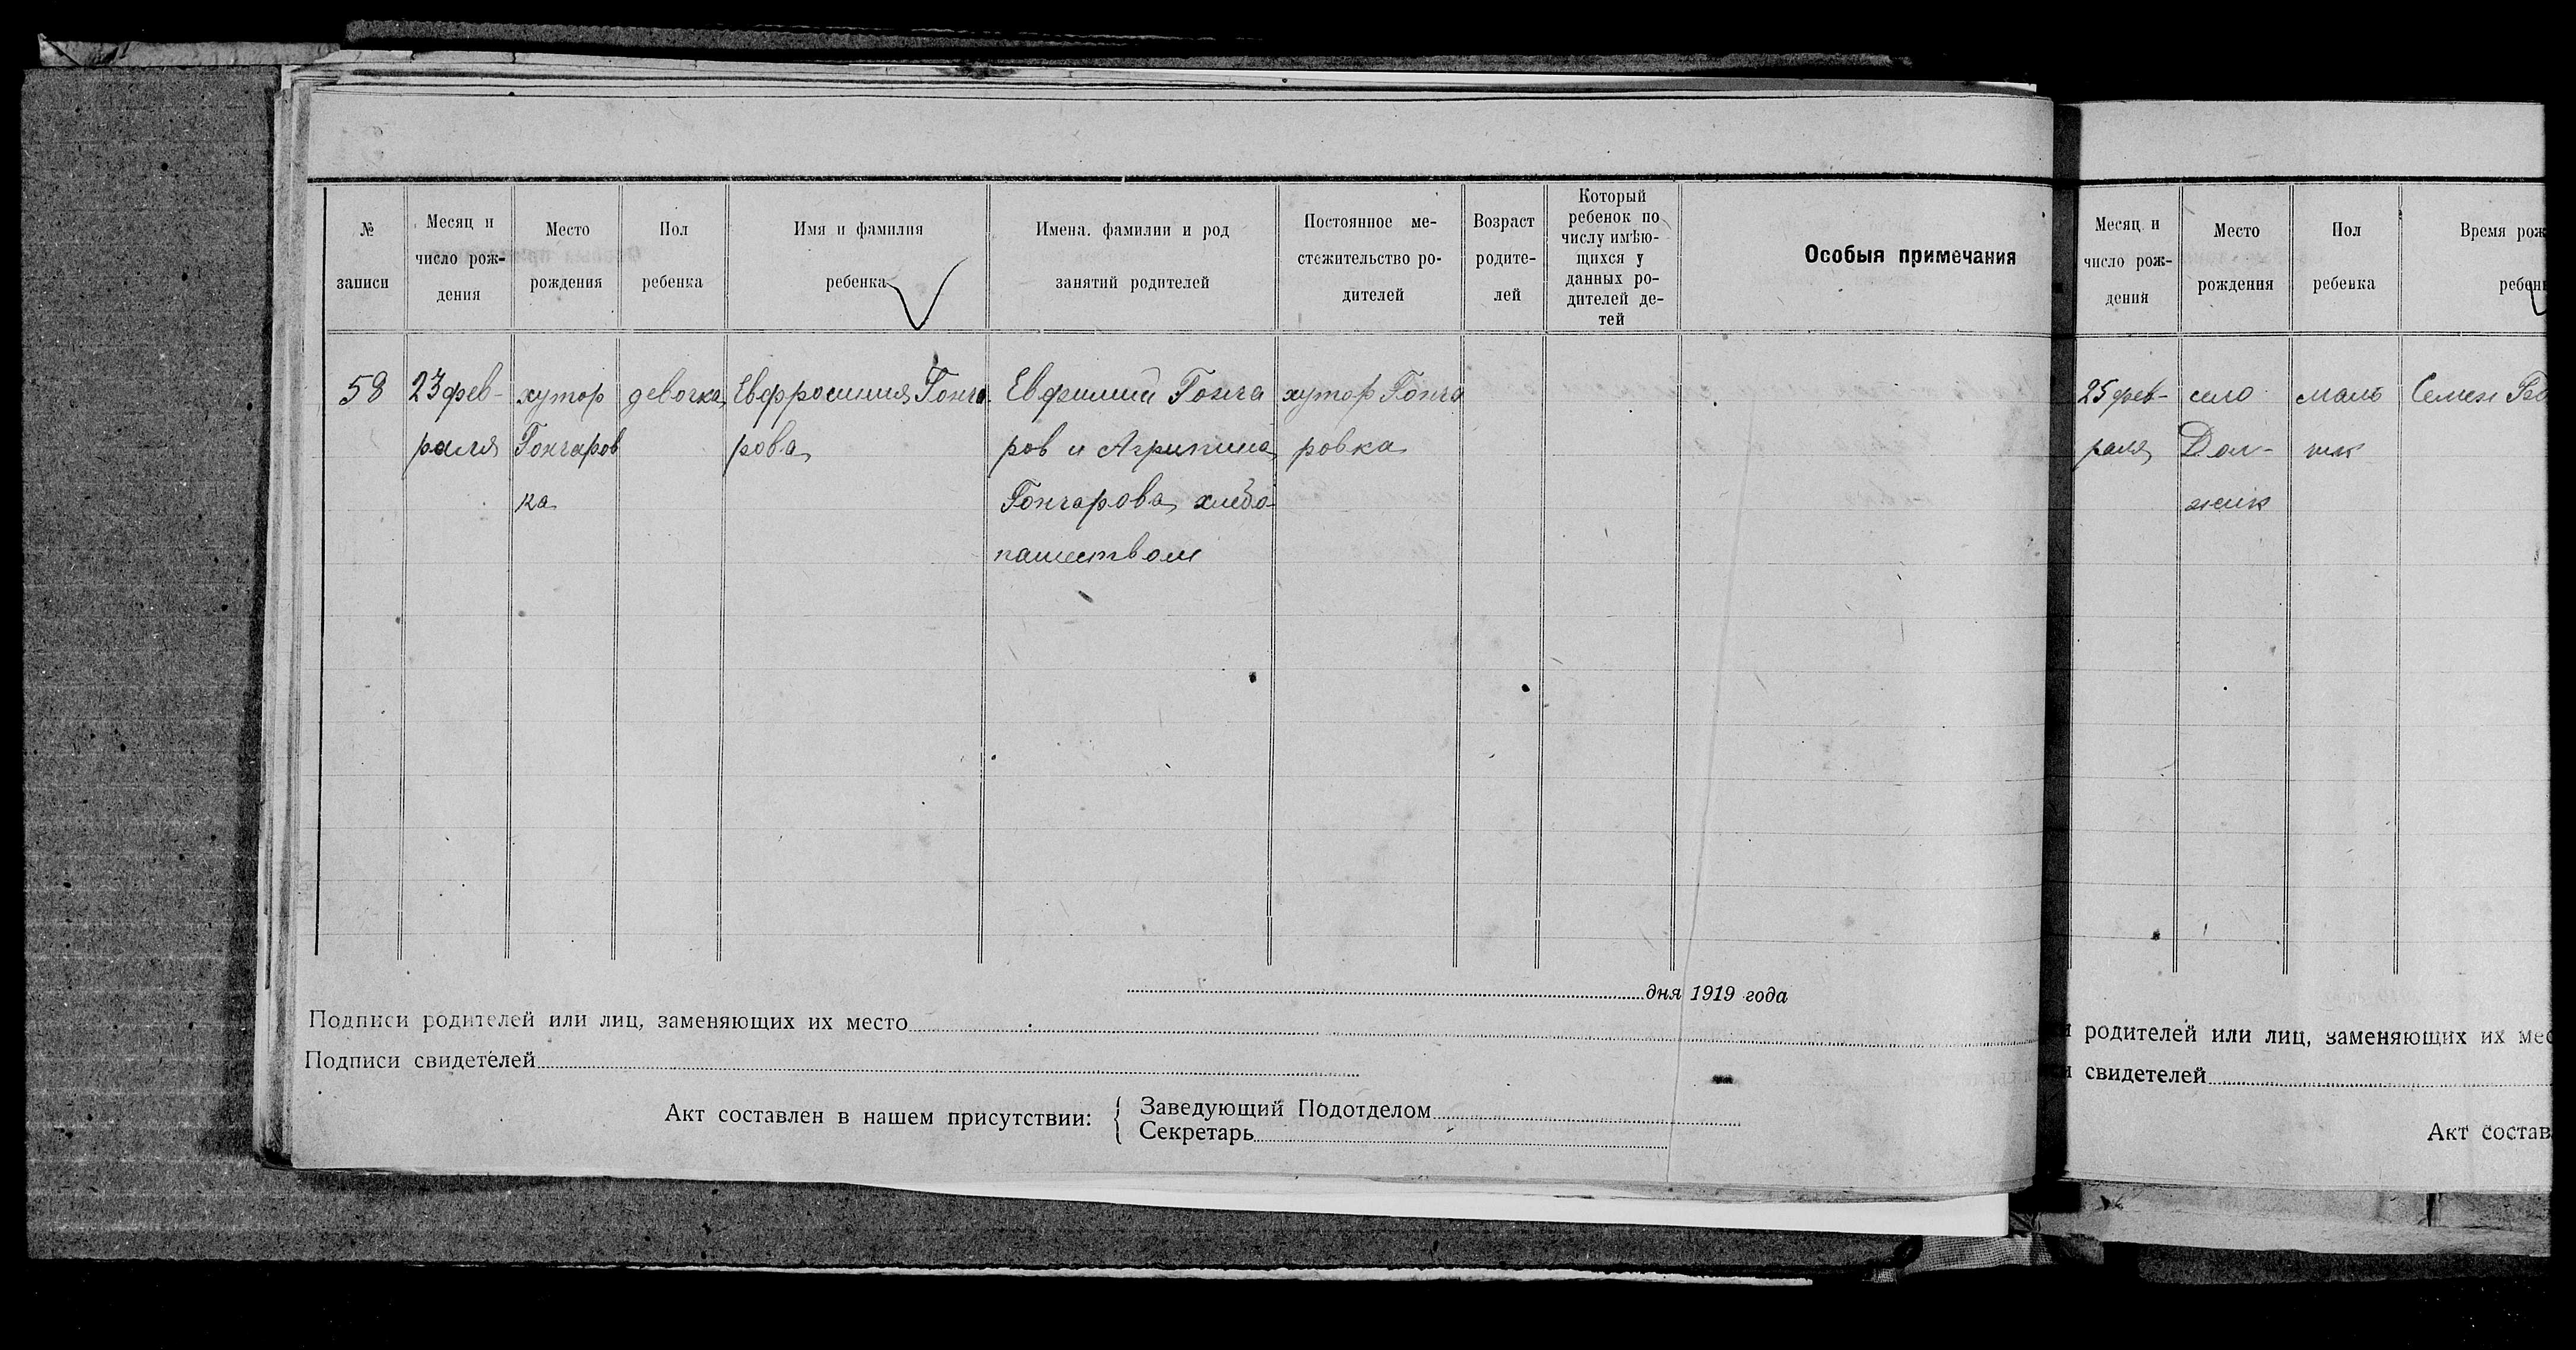 № записи
Месяц и число рождения
Место рождения
Пол ребенка
Имя и фамилия ребенка
Имена. фамилии и род занятий родителей
Постоянное ме-
стежительство ро-
дителей
Возраст
родите-
лей
Который
ребенок по
числу имѣю-
щихся у
данных ро-
дителей де-
тей
Особыя примечания
58
23 фев-
раля
хутор
Гончаров
ка
девочка
Евфросиния Гонча
рова
Евфимий Гонча
ров и Агрипина
Гончарова хлебо-
пашеством
хутор Гонча
ровка
дня 1919 года
Подписи родителей или лиц, заменяющих их место
Подписи свидетелей
Акт составлен в нашем присутствии:
Заведующий Подотделом
Секретарь
Месяц и
число рож-
дения
Место
рождения
Пол
ребенка
Время рож
ребен
25 фев-
раля
село
Дол-
жик
маль
чик
Семен
родителей или лиц, заменяющих их мес
свидетелей
Акт состав